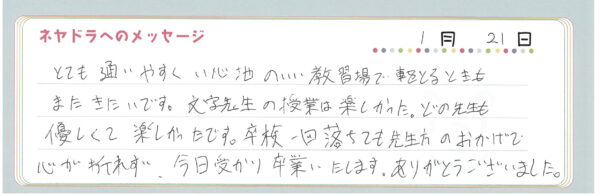 ネヤドラへのメッセージ
1月 21日
とても通いやすくい心地のいい教習場で車をとるときも
またきたいです。文字先生の授業は楽しかった。どの先生も
優しくて楽しかったです。卒検一回落ちても先生方のおかげで
心が折れず、今日受かり卒業いたします。ありがとうございました。